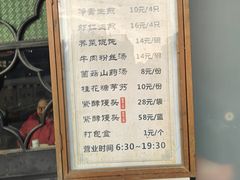 净素生煎 10元/4只
虾仁生煎 16元/4只
荠菜馄饨 14元/碗
牛肉粉丝汤 14元/碗
菌菇山药汤 8元/份
桂花糖芋艿 10元/份
紫酵馒头 28元/袋
紫酵馒头 58元/盒
打包盒 1元/个
营业时间 6:30~19:30